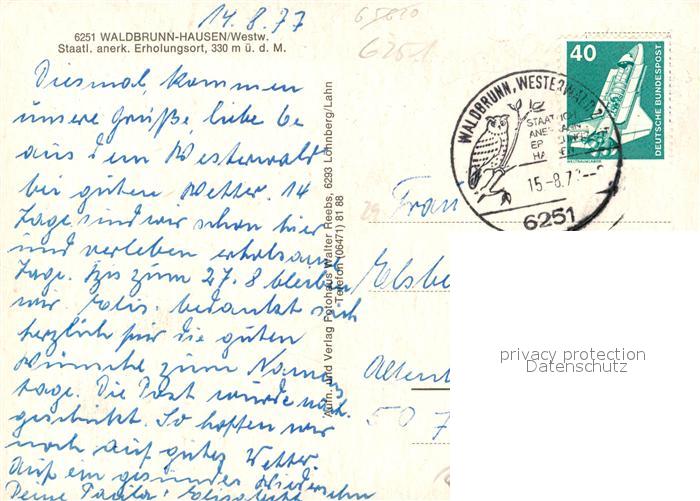 14.8.77
6251 WALDBRUNN-HAUSEN/Westw.
Staatl. anerk. Erholungsort, 330 m ü. d. M.
Diesmal kommen
unsere Grüße, liebe
aus dem Westerwald
bei gutem Wetter. 14
Tage sind wir schon hier
und verleben erholsame
Tage. Bis zum 27.8 bleiben
wir. Elis. bedankt sich
herzlich für die guten
Wünsche zum Namens
tage. Die Post wurde nach
geschickt. So hoffen wir
noch auf gutes Wetter.
Auf ein gesundes Wiedersehn
Deine Paula + Elisabeth
Aufn. und Verlag Fotohaus Walter Reebs, 6293 Löhnberg/Lahn
Telefon (06471) 81 88
6251
40
DEUTSCHE BUNDESPOST
WELTRAUMLABOR
WALDBRUNN, WESTERWALD
STAATLICH
15.-8.7
6251
29
Frau
Elsbe
Alten
507
privacy protection
Datenschutz